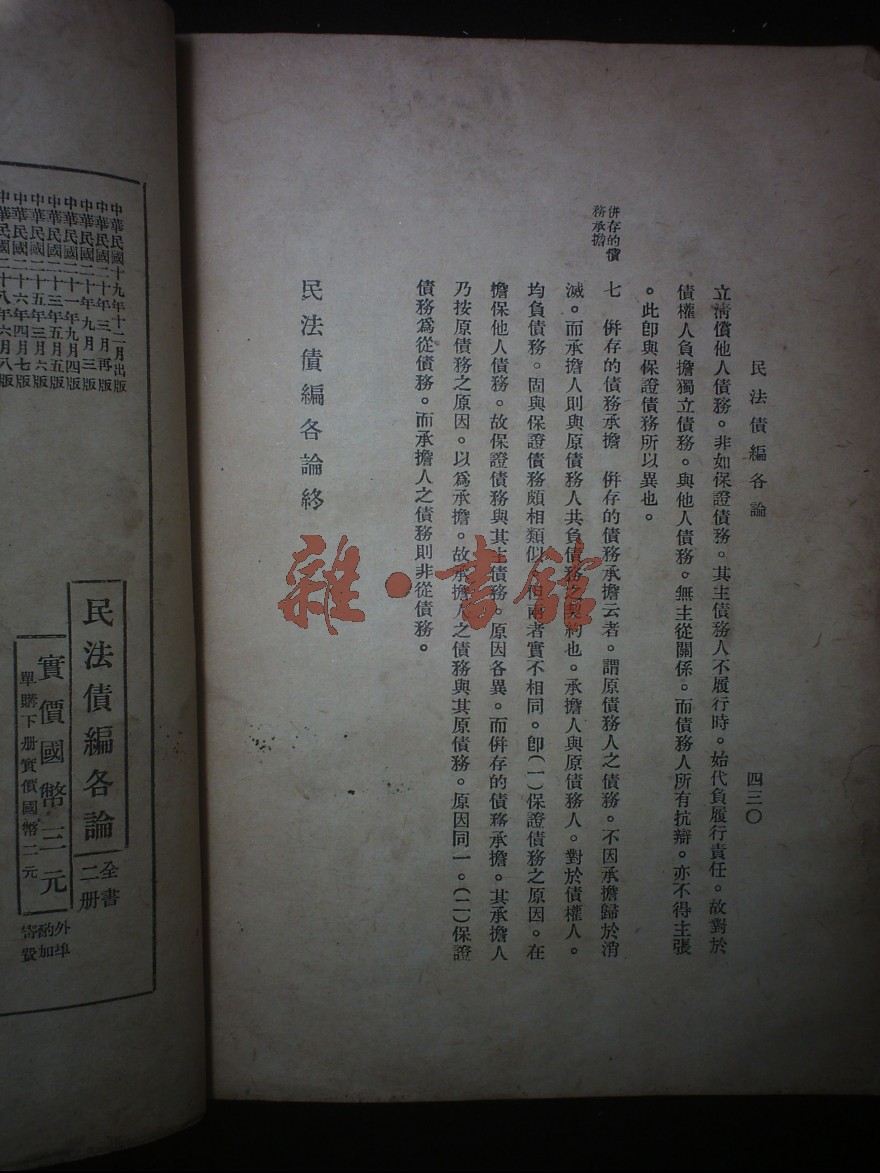 民法債編各論
四三〇
立淸償他人債務。非如保證債務。其主債務人不履行時。始代負履行責任。故對於
債權人負擔獨立債務。與他人債務。無主從關係。而債務人所有抗辯。亦不得主張
。此卽與保證債務所以異也。
併存的債
務承擔
七 併存的債務承擔 併存的債務承擔云者。謂原債務人之債務。不因承擔歸於消
滅。而承擔人則與原債務人共負債務之契約也。承擔人與原債務人。對於債權人。
均負債務。固與保證債務頗相類似。但兩者實不相同。卽(一)保證債務之原因。在
擔保他人債務。故保證債務與其主債務。原因各異。而併存的債務承擔。其承擔人
乃按原債務之原因。以爲承擔。故承擔人之債務與其原債務。原因同一。(二)保證
債務爲從債務。而承擔人之債務則非從債務。
民法債編各論終
雜·書館
中華民國十九年十二月出版
中華民國二十年三月再版
中華民國二十年九月三版
中華民國二十一年九月四版
中華民國二十三年五月五版
中華民國二十五年三月六版
中華民國二十六年四月七版
中華民國二十八年六月八版
民法債編各論
全書
二册
實價國幣三元
單購下册實價國幣二元
外埠
酌加
寄費